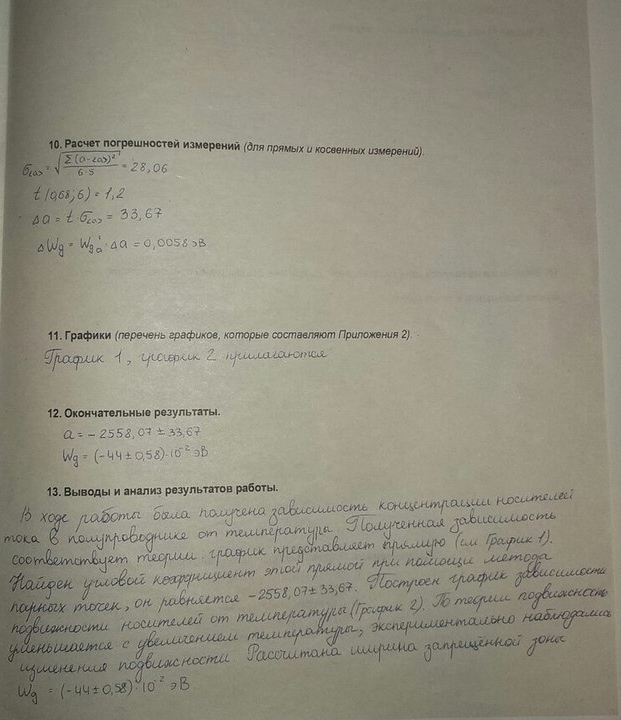 10. Расчет погрешностей измерений (для прямых и косвенных измерений).
σ<a> = √(Σ(a-<a>)²/6·5) = 28,06
t(0,68;6) = 1,2
Δa = t·σ<a> = 33,67
ΔWg = Wg'a·Δa = 0,0058 эВ
11. Графики (перечень графиков, которые составляют Приложения 2).
График 1, график 2 прилагаются
12. Окончательные результаты.
a = -2558,07 ± 33,67
Wg = (-44 ± 0,58)·10⁻² эВ
13. Выводы и анализ результатов работы.
В ходе работы была получена зависимость концентрации носителей
тока в полупроводнике от температуры. Полученная зависимость
соответствует теории: график представляет прямую (см График 1).
Найден угловой коэффициент этой прямой при помощи метода
парных точек, он равняется -2558,07 ± 33,67. Построен график зависимости
подвижности носителей от температуры (График 2). По теории подвижность
уменьшается с увеличением температуры, экспериментально наблюдались
изменения подвижности. Рассчитана ширина запрещённой зоны
Wg = (-44 ± 0,58)·10⁻² эВ